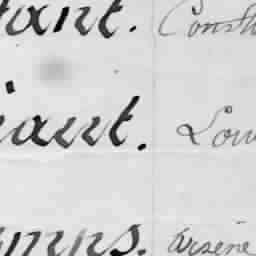 tant. Const
iant. Lou
mps. Arsène